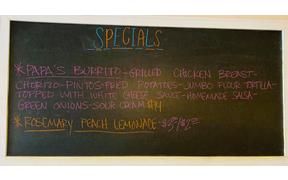 SPECIALS
*PAPA'S BURRITO-GRILLED CHICKEN BREAST-
CHORIZO-PINTOS-FRIED POTATOES-JUMBO FLOUR TORTILLA-
TOPPED WITH WHITE CHEESE SAUCE-HOMEMADE SALSA-
GREEN ONIONS-SOUR CREAM $14
*ROSEMARY PEACH LEMONADE-